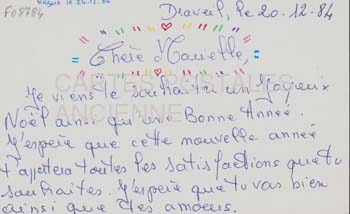 Fo8784
Draveil, le 20.12.84
Chère Marielle,
CARTES POSTALES
ANCIENNES
Je viens te souhaiter un Joyeux
Noël ainsi qu'une Bonne Année.
J'espère que cette nouvelle année
t'apportera toutes les satisfactions que tu
souhaites. J'espère que tu vas bien
ainsi que tes amours.